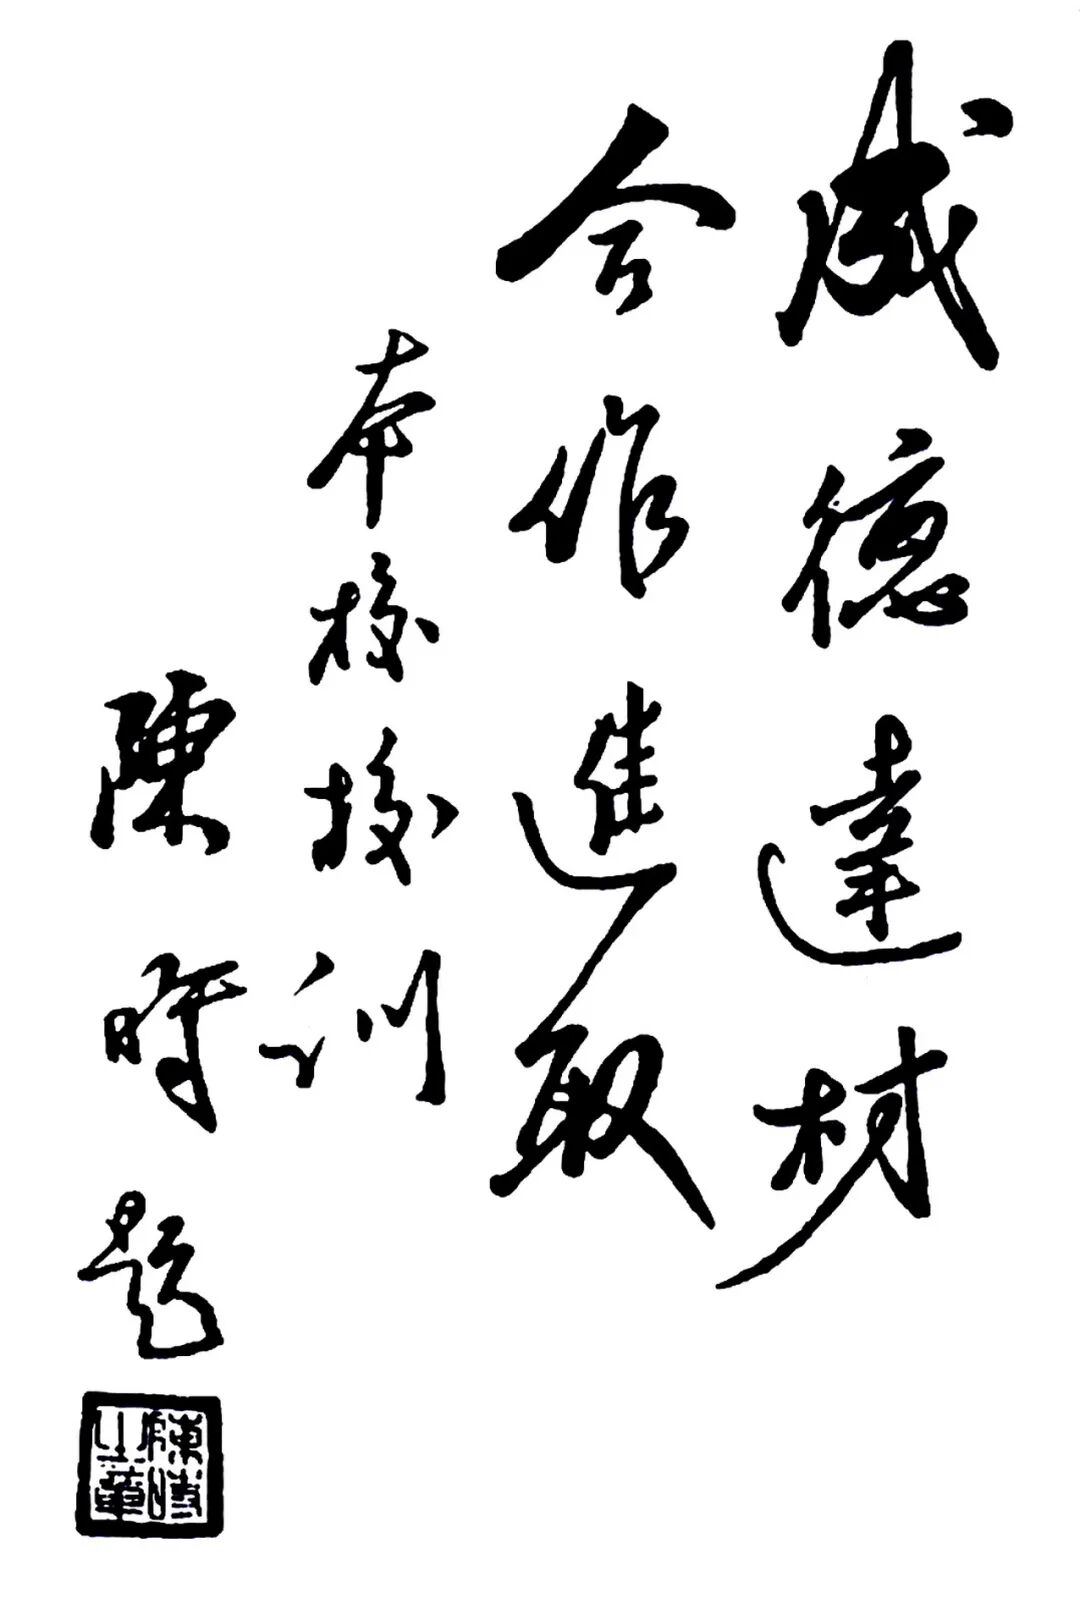 成德達材
合作進取
本校校訓
陳時題
陳時之章